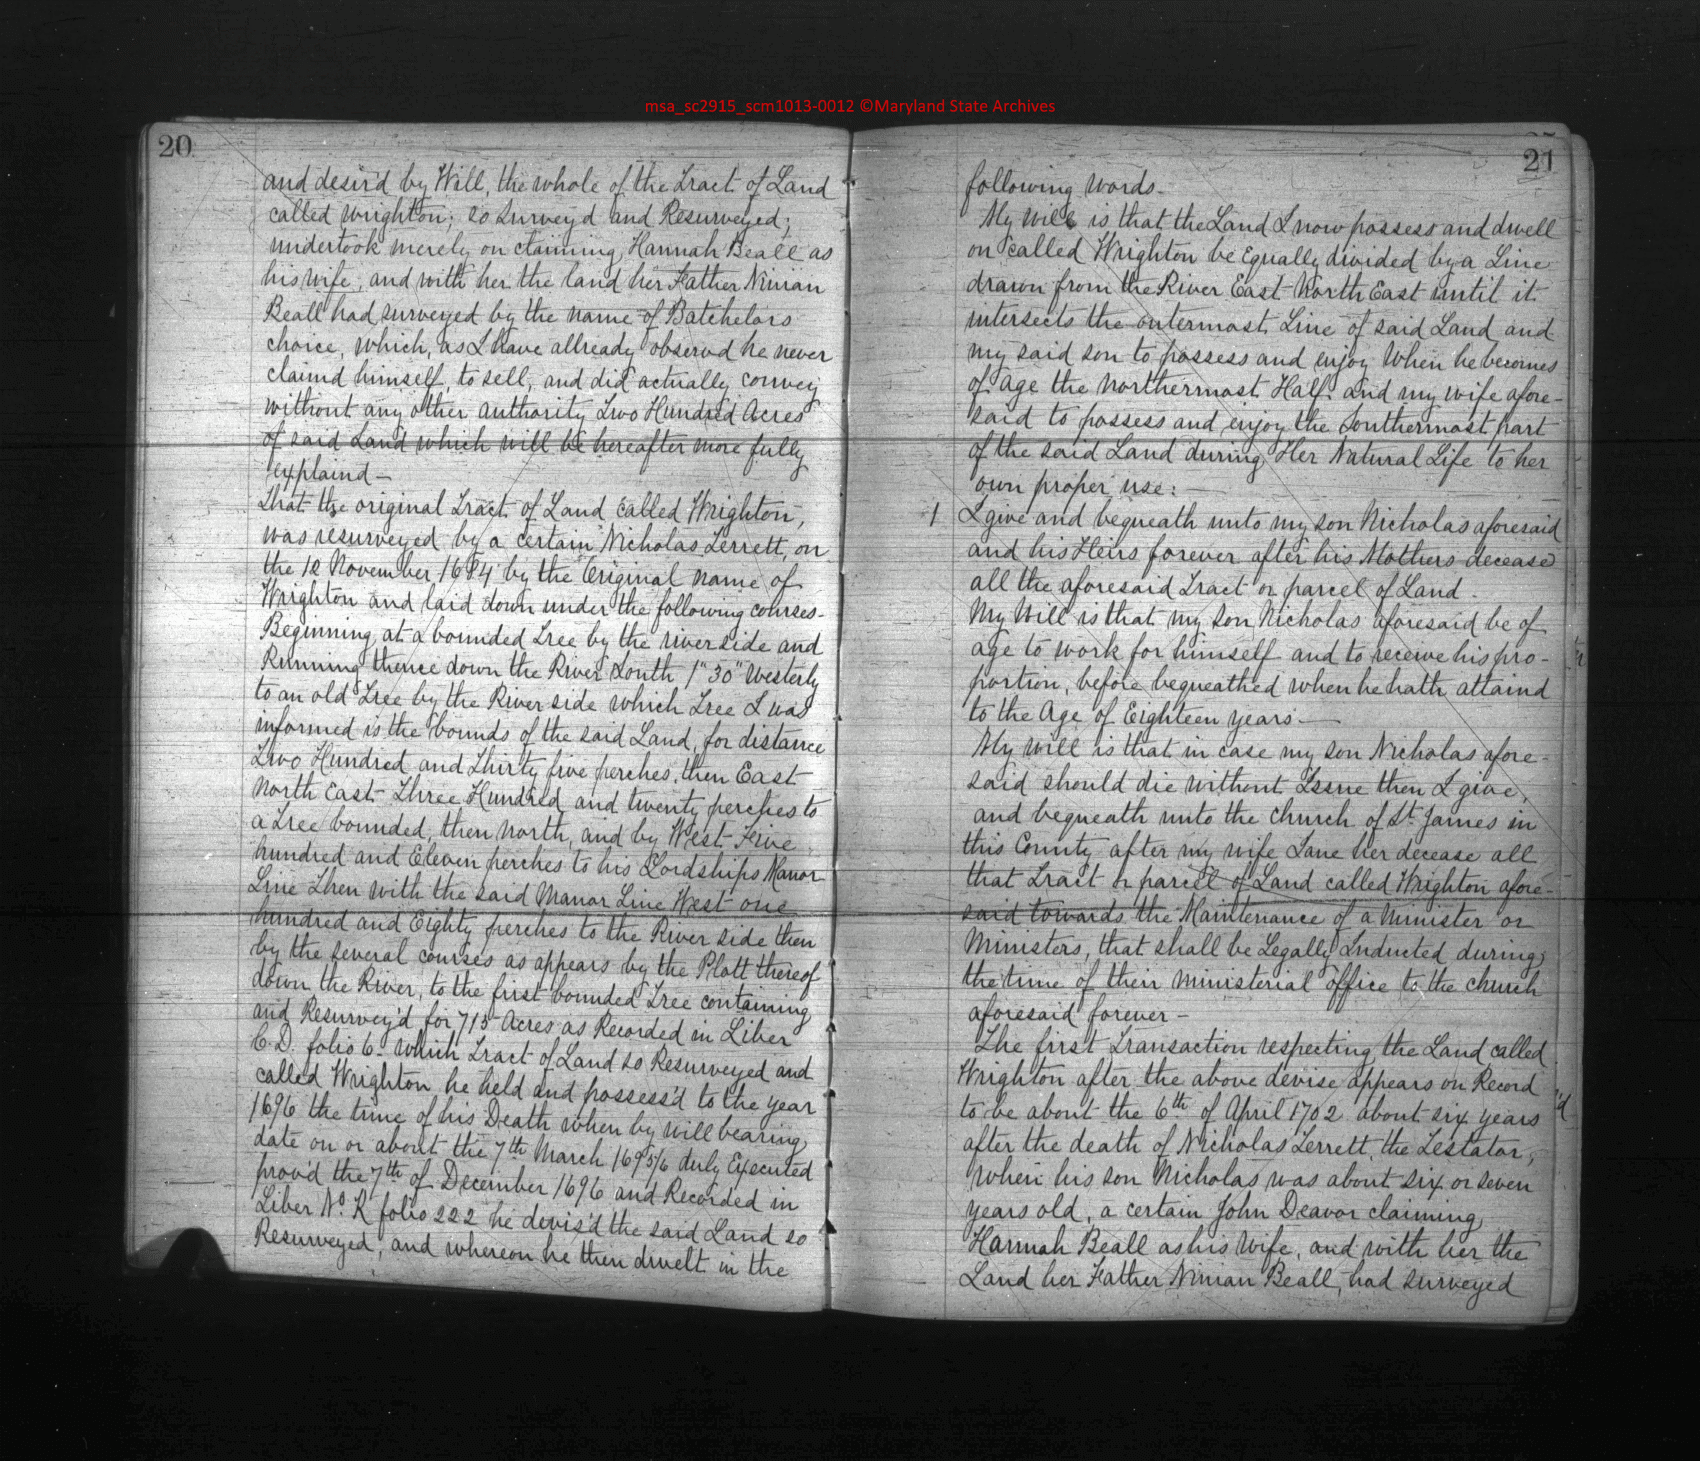 msa_sc2915_scm1013-0012 ©Maryland State Archives
20
and desir'd by Will, the whole of the Tract of Land
called Wrighton; so Survey'd and Resurveyed;
undertook merely on claiming Hannah Beall as
his wife, and with her the land her Father Ninian
Beall had surveyed by the name of Batchelors
choice, which, as I have allready observd he never
claimd himself to sell, and did actually convey
without any other authority Two Hundred Acres
of said Land which will be hereafter more fully
explaind —
That the original Tract of Land called Wrighton,
was resurveyed by a certain Nicholas Terrett, on
the 12 November 1684 by the Original name of
Wrighton and laid down under the following courses-
Beginning at a bounded Tree by the river side and
Running thence down the River South 1" 30" Westerly
to an old Tree by the River side which Tree I was
informed is the bounds of the said Land, for distance
Two Hundred and Thirty five perches, then East
North East Three Hundred and twenty perches to
a Tree bounded, then North, and by West Five
hundred and Eleven perches to his Lordships Manor
Line Then with the said Manor Line West one
hundred and Eighty perches to the River side then
by the several courses as appears by the Plott thereof
down the River, to the first bounded Tree containing
and Resurvey'd for 715 Acres as Recorded in Liber
C.D. folio 6- which Tract of Land so Resurveyed and
called Wrighton he held and possess'd to the year
1696 the time of his Death when by will bearing
date on or about the 7th March 1695/6 duly Executed
prov'd the 7th of December 1696 and Recorded in
Liber No. K folio 222 he devis'd the said Land so
Resurveyed, and whereon he then dwelt in the
21
following words-
My will is that the Land I now possess and dwell
on called Wrighton be Equally divided by a Line
drawn from the River East North East until it
intersects the outermost Line of said Land and
my said son to possess and enjoy When he becomes
of age the Northermost Half and my wife afore-
said to possess and enjoy the Southermost part
of the said Land during Her Natural Life to her
own proper use: —
1 I give and bequeath unto my son Nicholas aforesaid
and his Heirs forever after his Mothers decease
all the aforesaid Tract or parcel of Land -
My Will is that my son Nicholas aforesaid be of
age to work for himself and to receive his pro-
portion, before bequeathed when he hath attaind
to the Age of Eighteen years —
My will is that in case my son Nicholas afore-
said should die without Issue then I give,
and bequeath unto the Church of St. James in
this County after my wife Jane her decease all
that Tract or parcel of Land called Wrighton afore-
said towards the Maintenance of a Minister or
Ministers, that shall be Legally Inducted during
the time of their Ministerial office to the church
aforesaid forever —
The first Transaction respecting the Land called
Wrighton after the above devise appears on Record
to be about the 6th of April 1702 about six years
after the death of Nicholas Terrett, the Testator,
When his son Nicholas was about six or seven
years old, a certain John Deavor claiming
Hannah Beall as his Wife, and with her the
Land her Father Ninian Beall, had surveyed